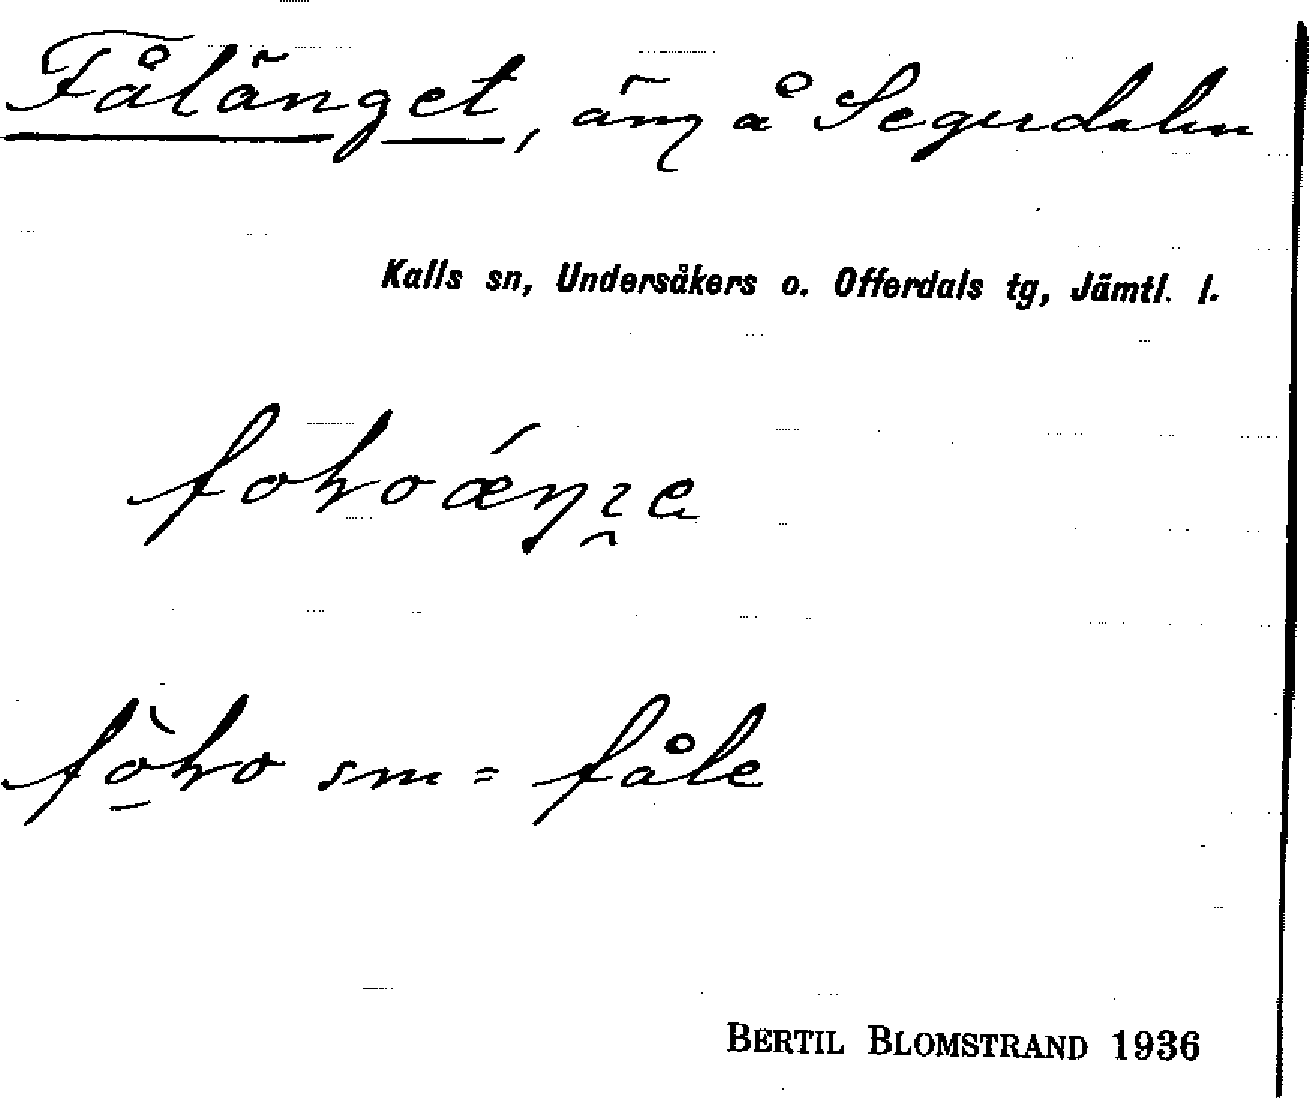 Fålänget, äng å Segerdalen
Kalls sn, Undersåkers o. Offerdals tg, Jämtl. l.
sm = fåle
BERTIL BLOMSTRAND 1936